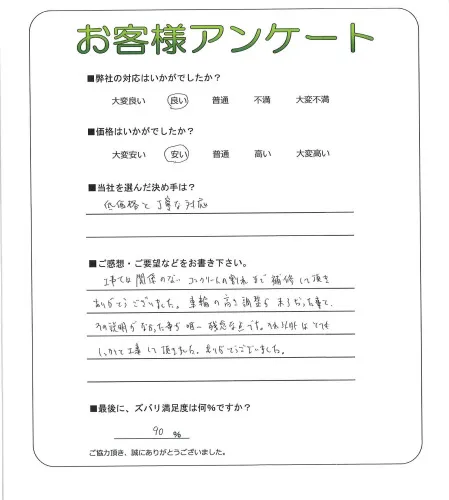 お客様アンケート
■弊社の対応はいかがでしたか？
大変良い 良い 普通 不満 大変不満
■価格はいかがでしたか？
大変安い 安い 普通 高い 大変高い
■当社を選んだ決め手は？
低価格と丁寧な対応
■ご感想・ご要望などをお書き下さい。
工事では関係のない コンクリートの割れまで補修して頂き
ありがとうございました。車輪の高さ調整が 事で、
その説明がなかった事が唯一残念な点です。それ以外はとても
しっかり工事して頂きました。ありがとうございました。
■最後に、ズバリ満足度は何％ですか？
90 ％
ご協力頂き、誠にありがとうございました。